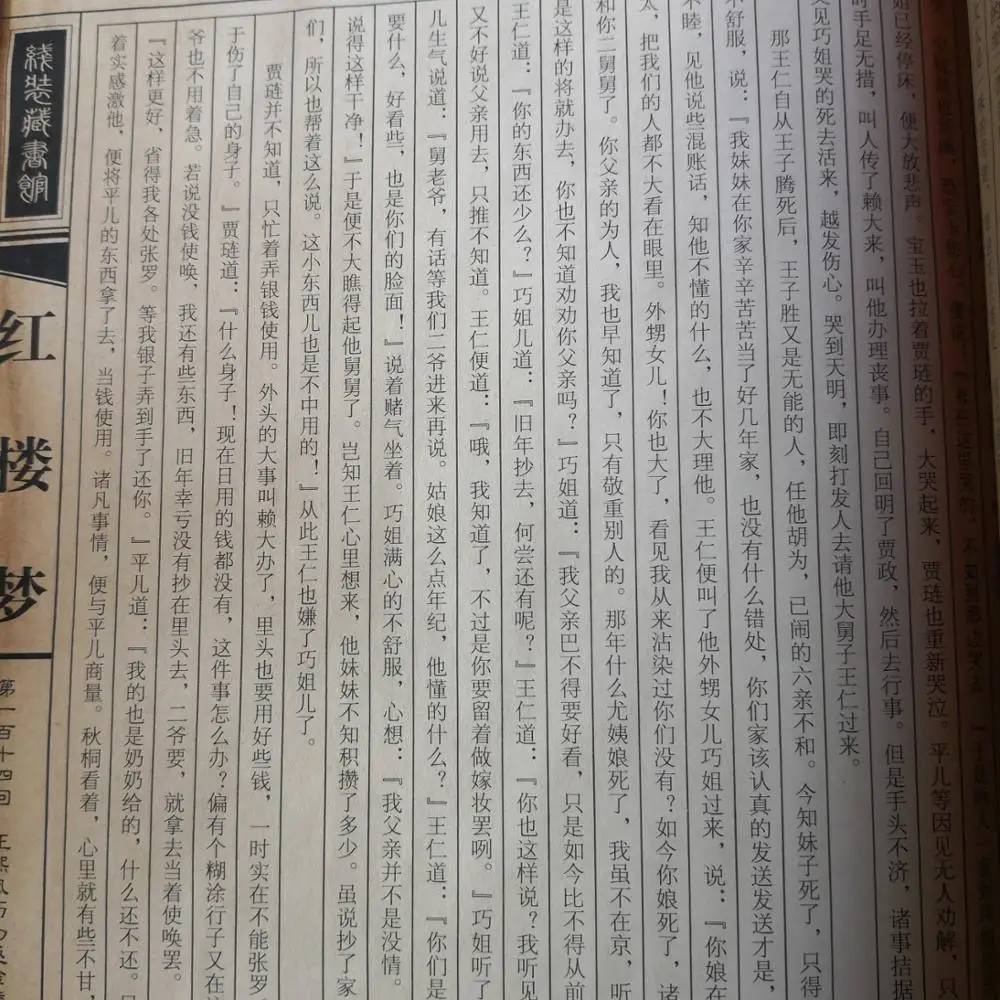 姐已经停床，便大放悲声。宝玉也拉着贾琏的手，大哭起来，贾琏也重新哭泣。平儿等因见无人劝解，只
时手足无措，叫人传了赖大来，叫他办理丧事。自己回明了贾政，然后去行事。但是手头不济，诸事拮据
又见巧姐哭的死去活来，越发伤心。哭到天明，即刻打发人去请他大舅子王仁过来。
那王仁自从王子腾死后，王子胜又是无能的人，任他胡为，已闹的六亲不和。今知妹子死了，只得
不舒服，说：『我妹妹在你家辛辛苦苦当了好几年家，也没有什么错处，你们家该认真的发送发送才是，
不睦，见他说些混账话，知他不懂的什么，也不大理他。王仁便叫了他外甥女儿巧姐过来，说：『你娘在
太，把我们的人都不大看在眼里。外甥女儿！你也大了，看见我从来沾染过你们没有？如今你娘死了，诸
和你二舅舅了。你父亲的为人，我也早知道了，只有敬重别人的。那年什么尤姨娘死了，我虽不在京，听
是这样的将就办去，你也不知道劝劝你父亲吗？』巧姐道：『我父亲巴不得要好看，只是如今比不得从前
王仁道：『你的东西还少么？』巧姐儿道：『旧年抄去，何尝还有呢？』王仁道：『你也这样说？我听见
又不好说父亲用去，只推不知道。王仁便道：『哦，我知道了，不过是你要留着做嫁妆罢咧。』巧姐听了
儿生气说道：『舅老爷，有话等我们二爷进来再说。姑娘这么点年纪，他懂的什么？』王仁道：『你们是
要什么，好看些，也是你们的脸面！』说着赌气坐着。巧姐满心的不舒服，心想：『我父亲并不是没情。
说得这样干净！』于是便不大瞧得起他舅舅了。岂知王仁心里想来，他妹妹不知积攒了多少。虽说抄了家
们，所以也帮着这么说。这小东西儿也是不中用的！』从此王仁也嫌了巧姐儿了。
贾琏并不知道，只忙着弄银钱使用。外头的大事叫赖大办了，里头也要用好些钱，一时实在不能张罗
于伤了自己的身子。』贾琏道：『什么身子！现在日用的钱都没有，这件事怎么办？偏有个糊涂行子又在
爷也不用着急。若说没钱使唤，我还有些东西，旧年幸亏没有抄在里头去，二爷要，就拿去当着使唤罢。
『这样更好，省得我各处张罗。等我银子弄到手了还你。』平儿道：『我的也是奶奶给的，什么还不还。
着实感激他，便将平儿的东西拿了去，当钱使用。诸凡事情，便与平儿商量。秋桐看着，心里就有些不甘，
线装藏书馆
红楼梦
第一百十四回 王熙凤历